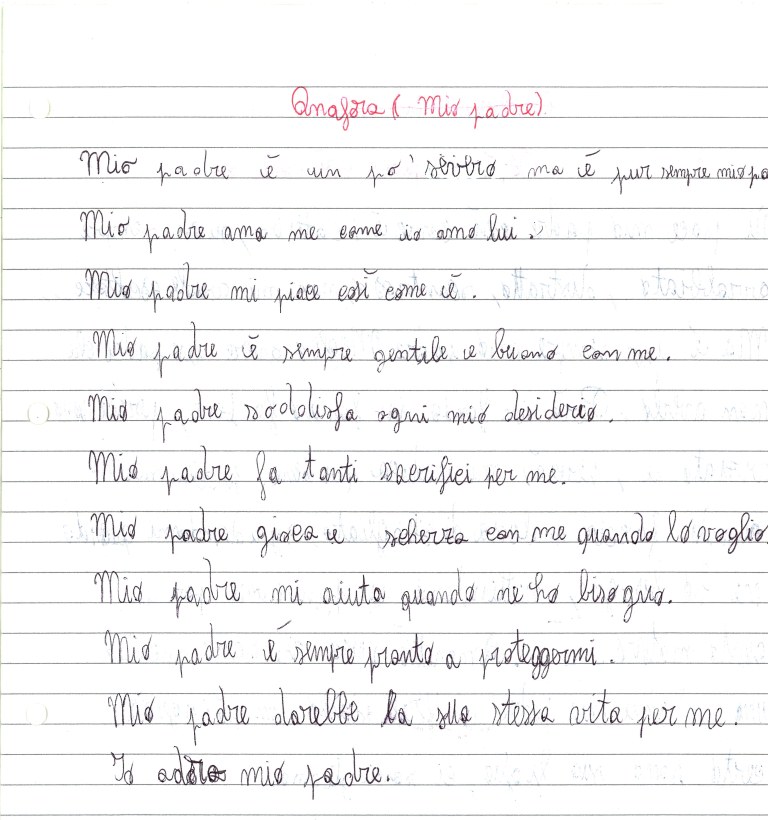 Anafora (Mio padre)
Mio padre è un po' severo ma è pur sempre mio pa
Mio padre ama me come io amo lui.
Mio padre mi piace così come è.
Mio padre è sempre gentile e buono con me.
Mio padre soddisfa ogni mio desiderio.
Mio padre fa tanti sacrifici per me.
Mio padre gioca e scherza con me quando lo voglio.
Mio padre mi aiuta quando ne ho bisogno.
Mio padre è sempre pronto a proteggermi.
Mio padre darebbe la sua stessa vita per me.
Io adoro mio padre.